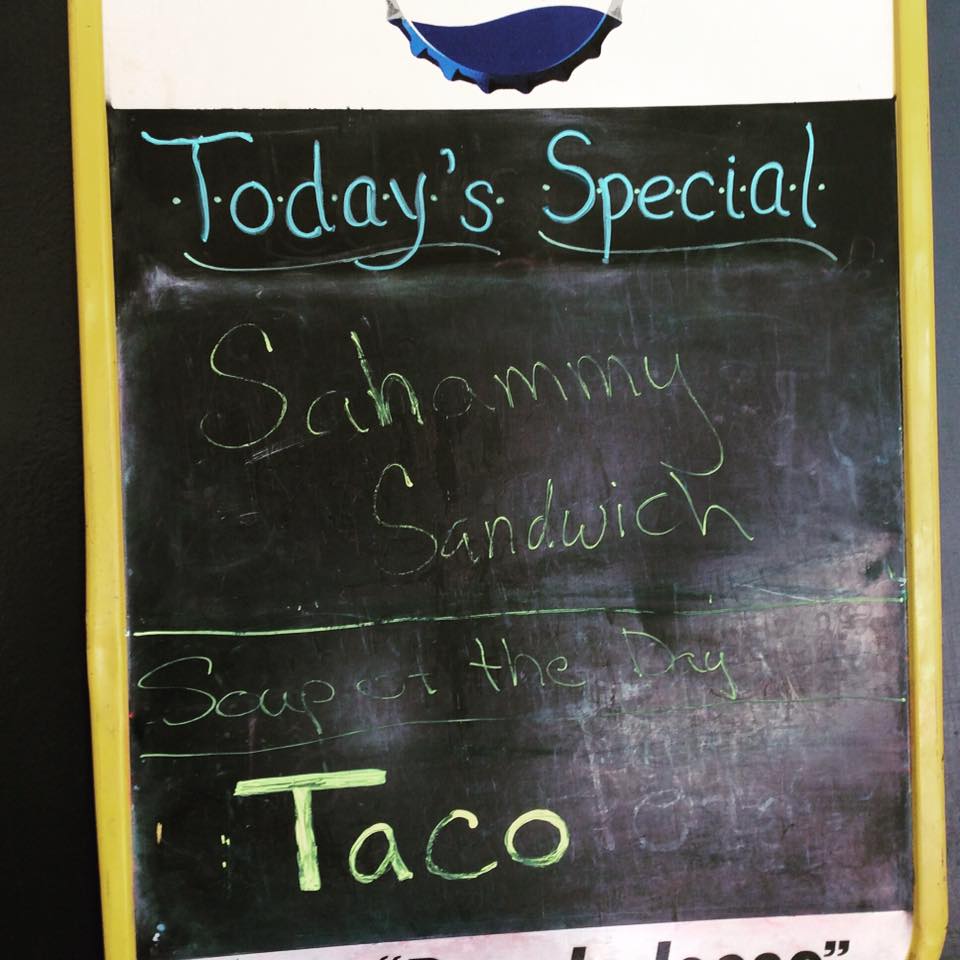 Today's Special
Sahammy
Sandwich
Soup of the Day
Taco